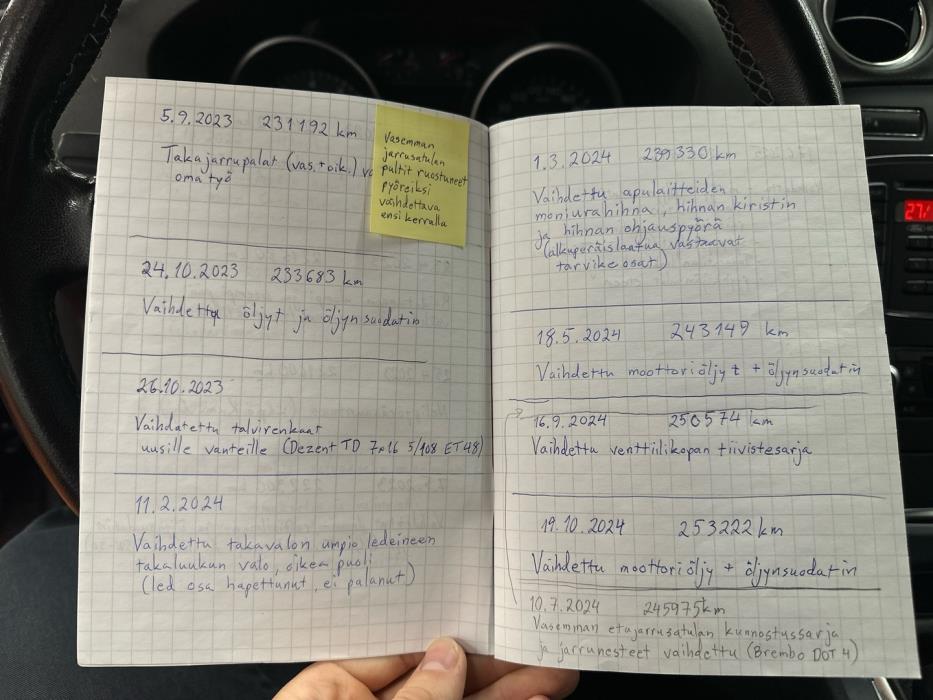 5.9.2023 231192 km
Takajarrupalat (vas.+oik.)
oma työ
Vasemman
jarrusatulan
pultit ruostuneet
pyöreiksi
vaihdettava
ensi kerralla
24.10.2023 233683 km
Vaihdettu öljyt ja öljynsuodatin
26.10.2023
Vaihdatettu talvirenkaat
uusille vanteille (Dezent TD 7x16 5/108 ET48)
11.2.2024
Vaihdettu takavalon umpio ledeineen
takaluukun valo, oikea puoli
(led osa hapettunut, ei palanut)
1.3.2024 239330 km
Vaihdettu apulaitteiden
moniurahihna, hihnan kiristin
ja hihnan ohjauspyörä
(alkuperäislaatua vastaavat
tarvikeosat)
18.5.2024 243149 km
Vaihdettu moottoriöljyt + öljynsuodatin
16.9.2024 250574 km
Vaihdettu venttiilikopan tiivistesarja
19.10.2024 253222 km
Vaihdettu moottoriöljy + öljynsuodatin
10.7.2024 245975km
Vasemman etujarrusatulan kunnostussarja
ja jarrunesteet vaihdettu (Brembo DOT 4)